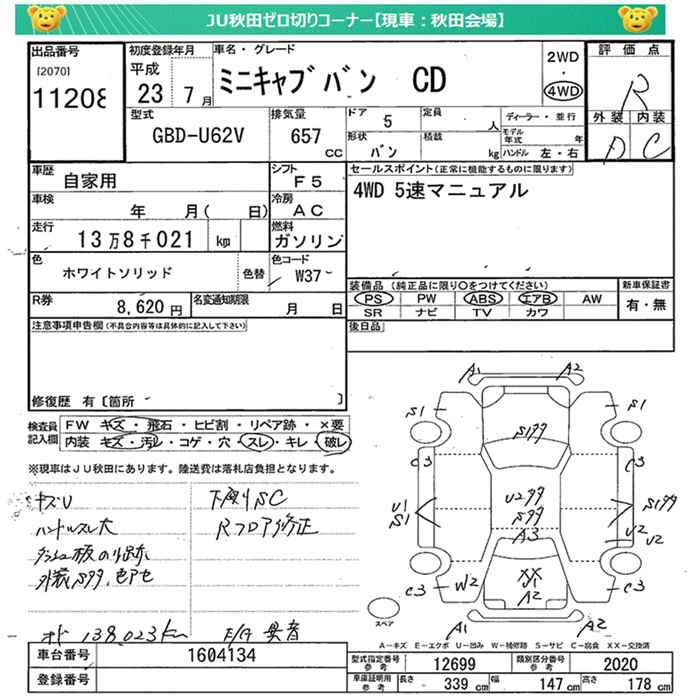 JU秋田ゼロ切りコーナー【現車：秋田会場】
出品番号
[2070]
11208
初度登録年月
平成
23 7月
車名・グレード
ミニキャブ バン CD
2WD
・
4WD
評価点
R
外装 内装
D C
型式
GBD-U62V
排気量
657
CC
ドア
5
定員
人
形状
バン
積載
kg
ディーラー・並行
モデル年式 年
ハンドル 左・右
車歴
自家用
シフト
F5
車検
年 月( 日)
冷房
AC
走行
13万8千021 km
燃料
ガソリン
色
ホワイトソリッド
色替
色コード
W37-
R券
8,620円
名変通知期限
月 日
セールスポイント(正常に機能するものに限ります)
4WD 5速マニュアル
装備品 (純正品に限り○をつけてください)
PS PW ABS エアB AW
SR ナビ TV カワ
新車保証書
有・無
後日品
注意事項申告欄(不具合内容等は具体的に記入して下さい)
修復歴 有〔箇所 〕
検査員記入欄
FW キズ・飛石・ヒビ割・リペア跡・×要
内装 キズ・汚レ・コゲ・穴・スレ・キレ・破レ
※現車はJU秋田にあります。陸送費は落札店負担となります。
キズU
ハンドルスレ大
外装S99、色アセ
下廻りSC
Rフロア修正
138,023km
異音
A1 A2
S1 S1
S199
C3 C3
U1
S1
U299
S99
S199
U2
A3
C3 W2
XX
A2
C3
A1 A2
スペア
A－キズ E－エクボ U－凹み W－補修跡 S－サビ C－腐食 XX－交換済
車台番号
1604134
登録番号
型式指定番号
参考
12699
類別区分番号
参考
2020
車庫証明用
参考
長さ 339cm
幅 147cm
高さ 178cm